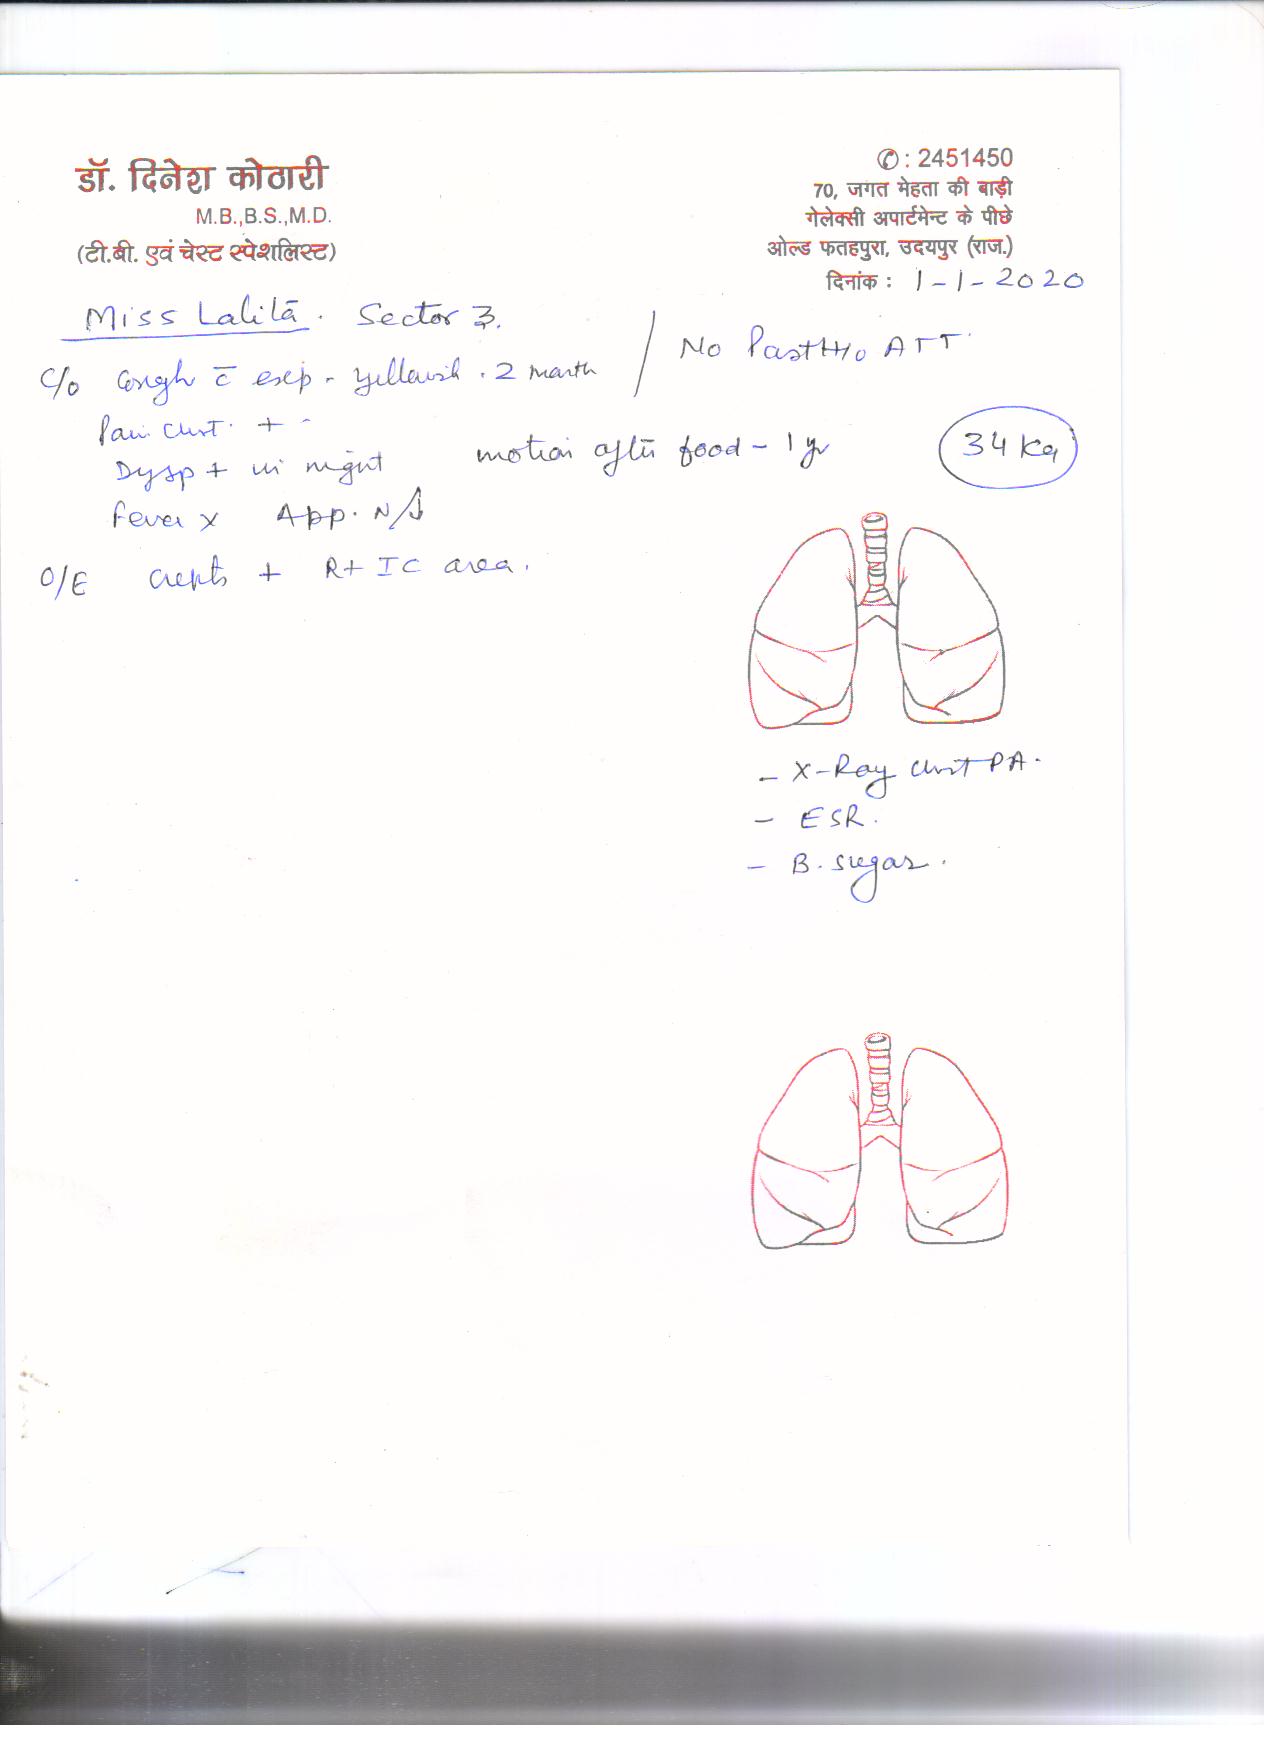 डॉ. दिनेश कोठारी
M.B.,B.S.,M.D.
(टी.बी. एवं चेस्ट स्पेशलिस्ट)
✆ : 2451450
70, जगत मेहता की बाड़ी
गेलेक्सी अपार्टमेन्ट के पीछे
ओल्ड फतहपुरा, उदयपुर (राज.)
दिनांक : 1-1-2020
Miss Lalita . Sector 3.
C/o Cough c̄ exp - yellowish . 2 month / No Past H/o ATT
Pain Chest +
Dysp + in night motion after food - 1 yr 34 Kg
Fever x App. N/↓
O/E Crepts + Rt IC area.
- X-Ray Chest PA.
- ESR.
- B. Sugar.